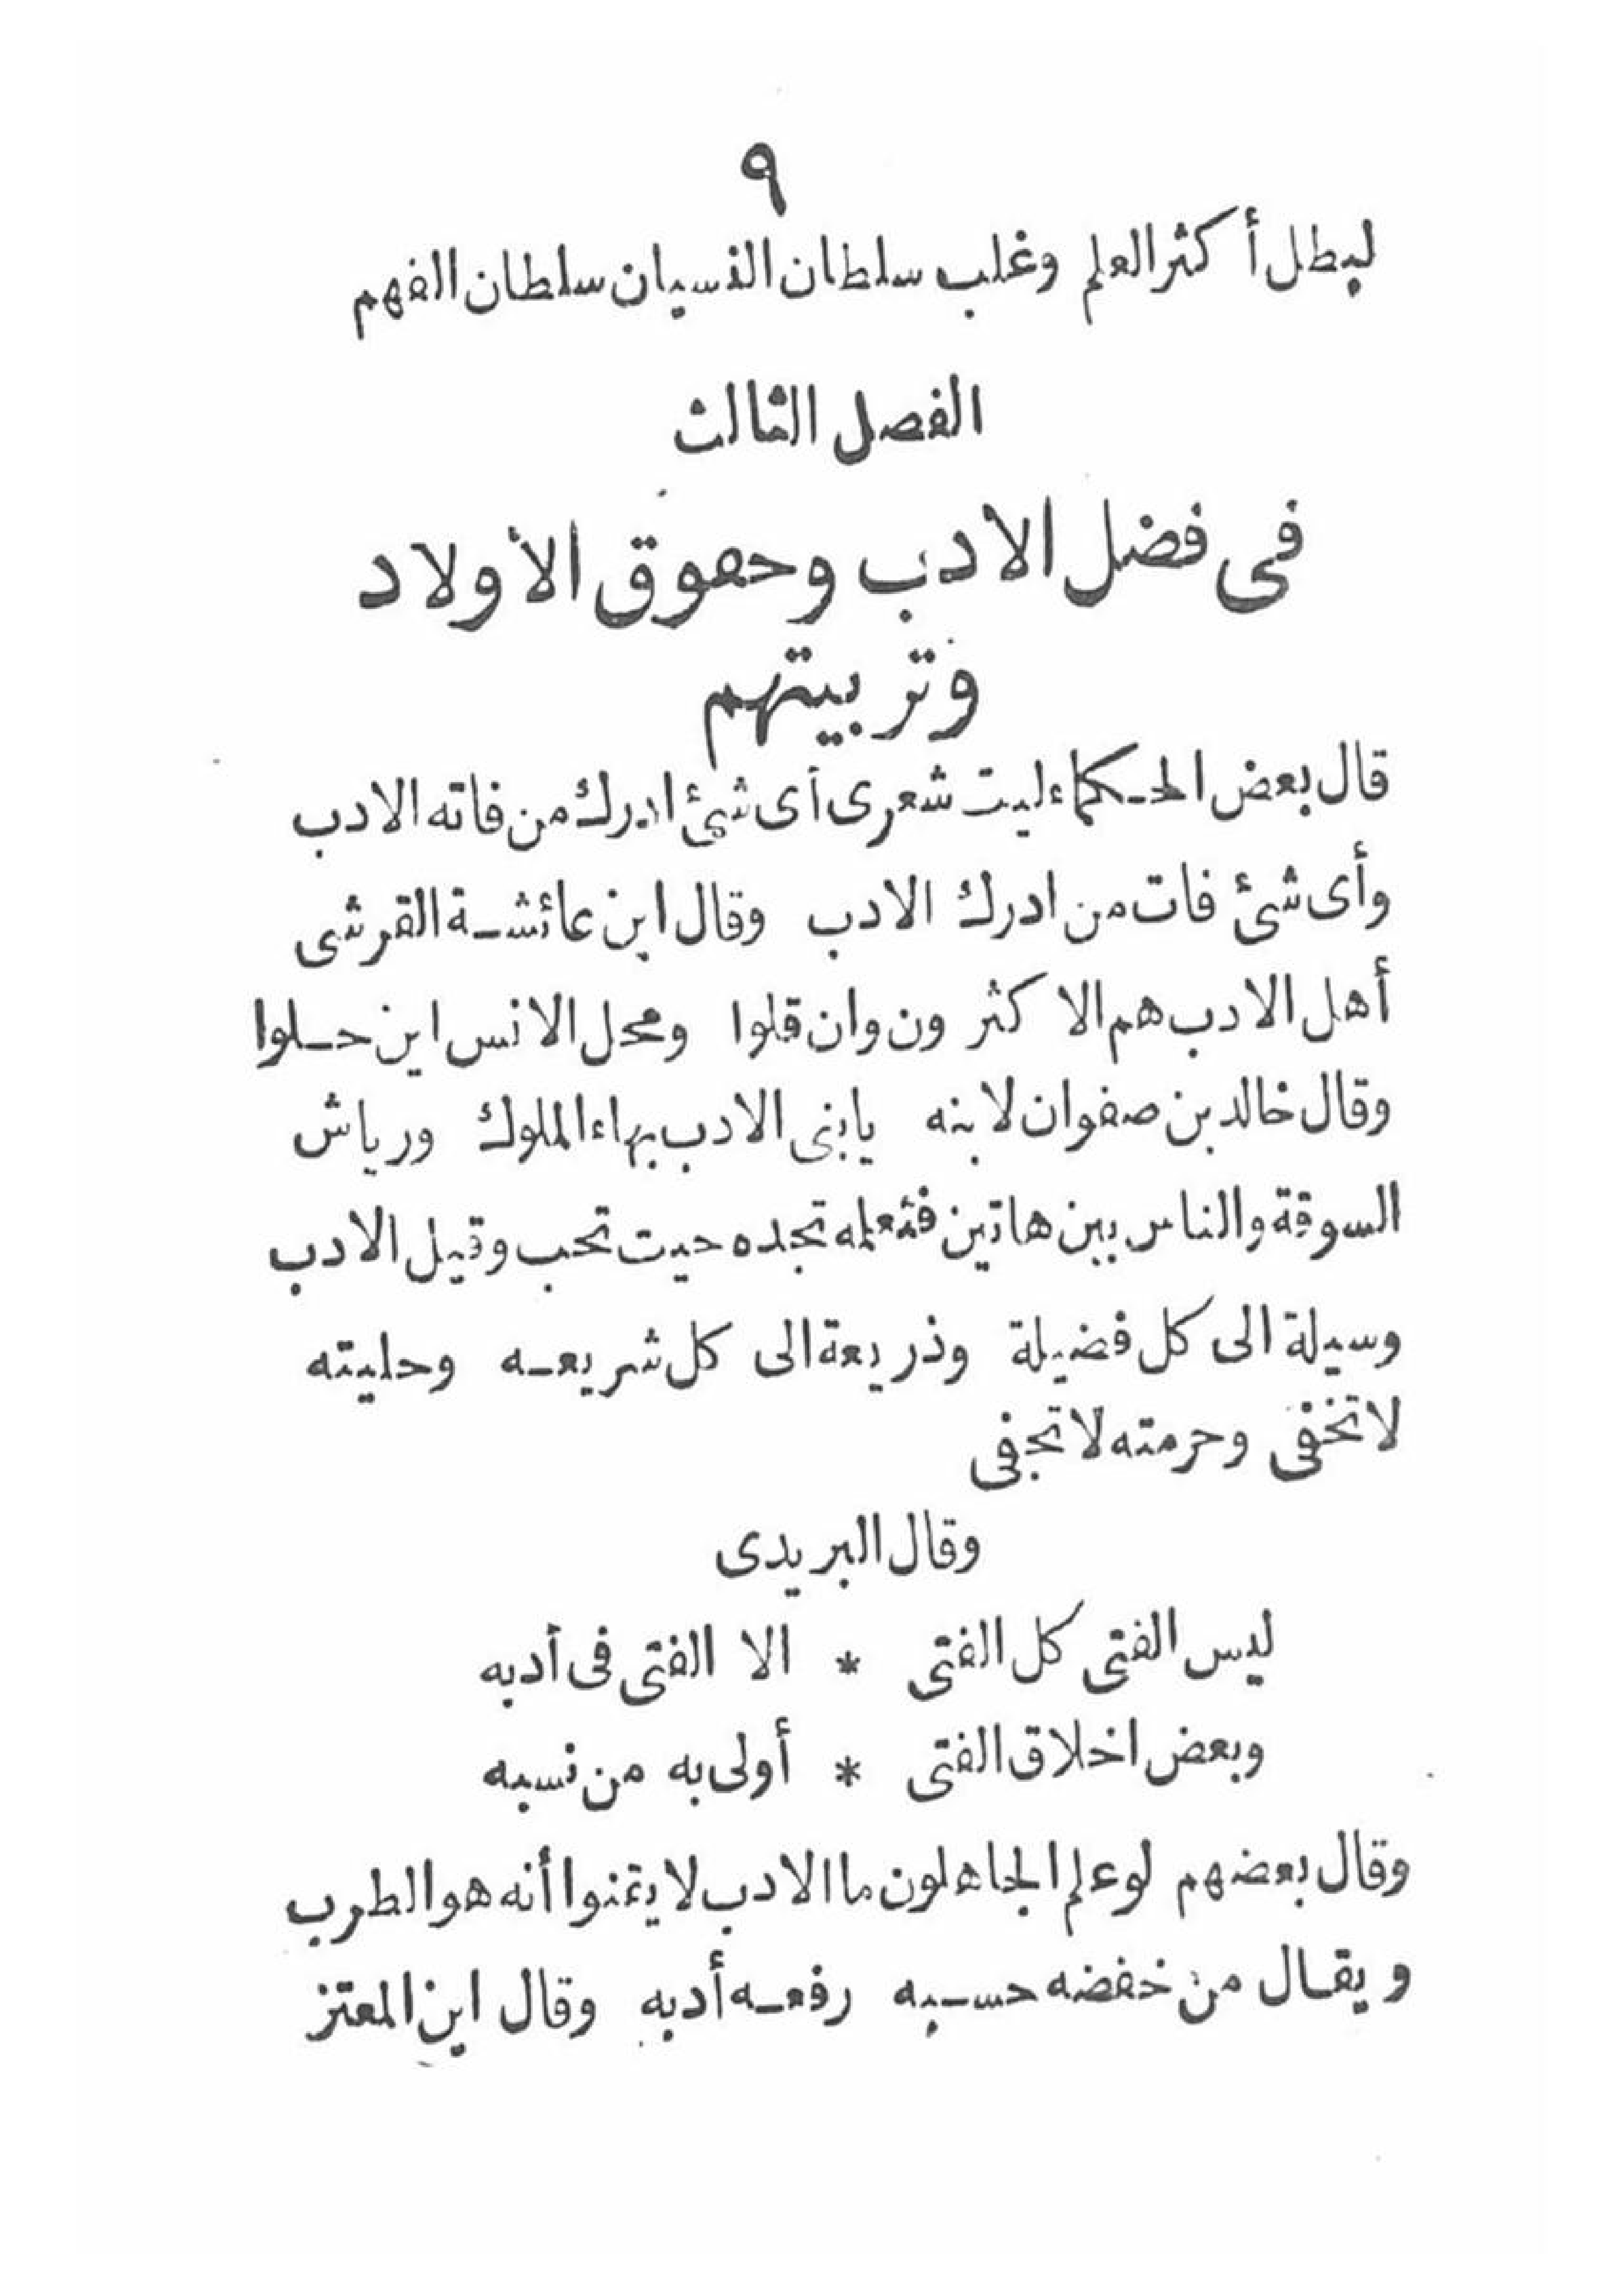 ٩
لبطل أكثر العلم وغلب سلطان النسيان سلطان الفهم
الفصل الثالث
فى فضل الادب وحقوق الأولاد
وتربيتهم
قال بعض الحكماء ليت شعرى أى شئ ادرك من فاته الادب
وأى شئ فات من ادرك الادب وقال ابن عائشة القرشى
أهل الادب هم الاكثرون وان قلوا ومحل الانس اين حلوا
وقال خالد بن صفوان لابنه يابنى الادب بهاء الملوك ورياش
السوقة والناس بين هاتين فتعلمه تجده حيت تحب وقيل الادب
وسيلة الى كل فضيلة وذريعة الى كل شريعه وحليته
لا تخفى وحرمته لا تجفى
وقال البريدى
ليس الفتى كل الفتى * الا الفتى فى أدبه
وبعض اخلاق الفتى * أولى به من نسبه
وقال بعضهم لو علم الجاهلون ما الادب لا يتمنوا أنه هو الطرب
ويقال من خفضه حسبه رفعه أدبه وقال ابن المعتز